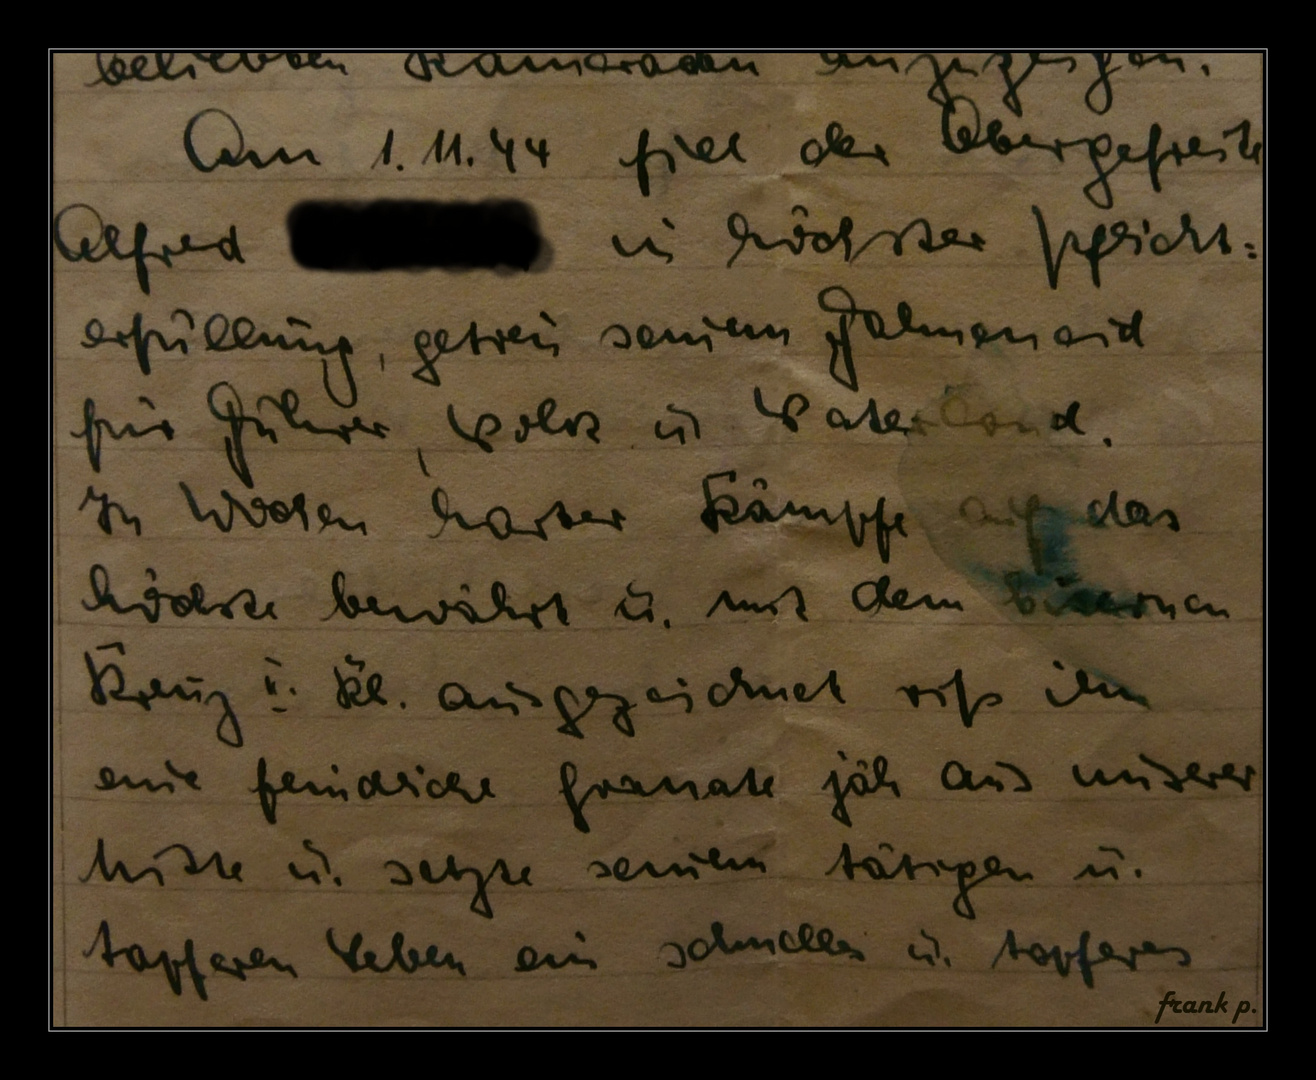 beliebten Kameraden anzuzeigen.
Am 1.11.44 fiel der Obergefreite
Alfred in höchster Pflicht:
erfüllung, getreu seinem Fahneneid
für Führer, Volk u Vaterland.
In Wochen harter Kämpfe auf das
höchste bewährt u. mit dem Eisernen
Kreuz II. Kl. ausgezeichnet riß ihn
eine feindliche Granate jäh aus unserer
Mitte u. setzte seinem tätigen u.
tapferen Leben ein schnelles u. tapferes
frank p.